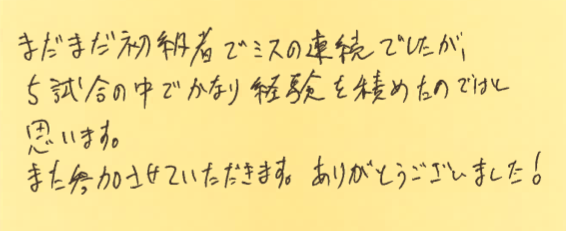 まだまだ初級者でミスの連続でしたが、
5試合の中でかなり経験を積めたのではと
思います。
また参加させていただきます。ありがとうございました!